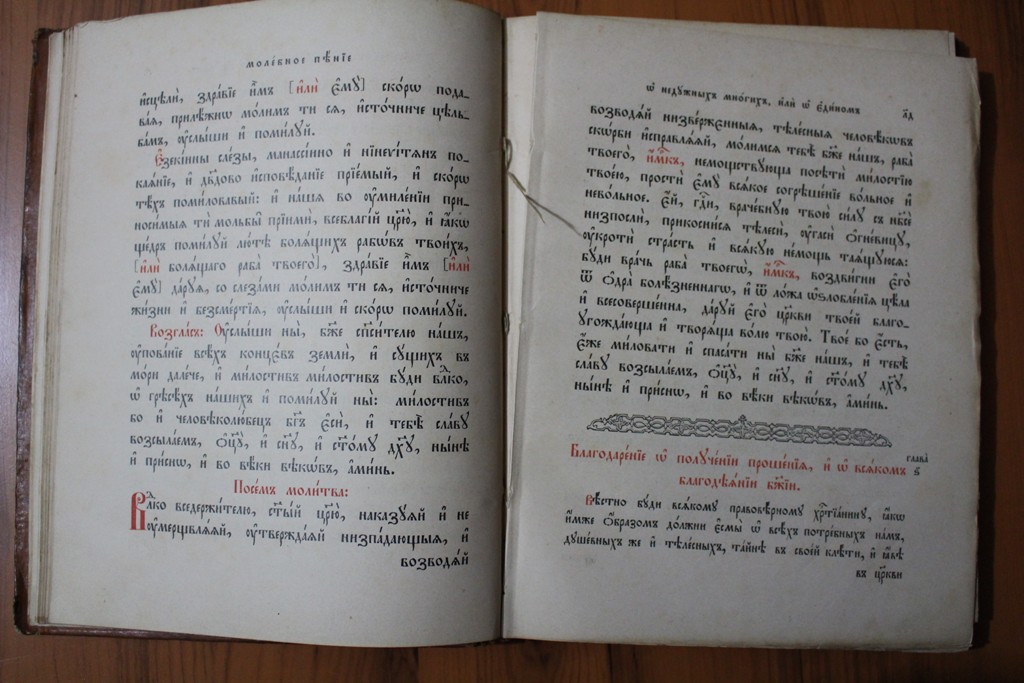 моле́бное пѣ́нїе
и҆сцѣлѝ, здра́вїе и҆̀мъ [и҆лѝ є҆мꙋ̀] ско́рѡ пода-
ва́ѧ, прилѣ́жнѡ мо́лимъ ти сѧ, и҆сто́чниче цѣль-
ба́мъ, ᲂу҆слы́ши и҆ поми́лꙋй.
Є҆зекі́ины сле́зы, манассі́ино и҆ нїнеѵі́тѧнъ по-
каѧ́нїе, и҆ дв҃дово и҆сповѣ́данїе прїе́мый, и҆ ско́рѡ
тѣ́хъ поми́ловавый: и҆ на́ша во ᲂу҆миле́нїи при-
носи́мыѧ тѝ мольбы̑ прїимѝ, всебл҃гі́й цр҃ю̀, и҆ ꙗ҆́кѡ
ще́дръ поми́лꙋй лю́тѣ болѧ́щихъ рабѡ́въ твои́хъ,
[и҆лѝ болѧ́щаго раба̀ твоего̀], здра́вїе и҆̀мъ [и҆лѝ
є҆мꙋ̀] да́рꙋѧ, со слеза́ми мо́лимъ ти сѧ, и҆сто́чниче
жи́зни и҆ безсме́ртїѧ, ᲂу҆слы́ши и҆ ско́рѡ поми́лꙋй.
Возгла́съ: Оу҆слы́ши ны̀, бж҃е сп҃си́телю на́шъ,
ᲂу҆пова́нїе всѣ́хъ концє́въ землѝ, и҆ сꙋ́щихъ въ
мо́ри дале́че, и҆ ми́лостивъ ми́лостивъ бꙋ́ди влⷣко,
ѡ҆ грѣсѣ́хъ на́шихъ и҆ поми́лꙋй ны̀: ми́лостивъ
бо и҆ человѣколю́бецъ бг҃ъ є҆сѝ, и҆ тебѣ̀ сла́вꙋ
возсыла́емъ, ѻ҆ц҃ꙋ̀, и҆ сн҃ꙋ, и҆ ст҃о́мꙋ дх҃ꙋ, ны́нѣ
и҆ при́снѡ, и҆ во вѣ́ки вѣкѡ́въ, а҆ми́нь.
Посе́мъ моли́тва:
Влⷣко вседержи́телю, ст҃ы́й цр҃ю̀, наказꙋ́ѧй и҆ не
ᲂу҆мерщвлѧ́ѧй, ᲂу҆твержда́ѧй низпа́дающыѧ, и҆
возводѧ́й
ѡ҆ недꙋ́жныхъ мно́гихъ, и҆лѝ ѡ҆ є҆ди́номъ
возводѧ́й низве́рженныѧ, тѣлє́сныѧ человѣ́кѡвъ
скѡ́рби и҆справлѧ́ѧй, мо́лимсѧ тебѣ̀ бж҃е на́шъ, раба̀
твоего̀, и҆́м҃къ, немощствꙋ́юща посѣтѝ ми́лостїю
твое́ю, простѝ є҆мꙋ̀ всѧ́кое согрѣше́нїе во́льное и҆
нево́льное. Є҆́й, гдⷭ҇и, враче́бнꙋю твою̀ си́лꙋ съ нб҃сѐ
низпослѝ, прикосни́сѧ тѣлесѝ, ᲂу҆гасѝ ѻ҆гневи́цꙋ,
ᲂу҆кротѝ стра́сть и҆ всѧ́кꙋю не́мощь таѧ́щꙋюсѧ:
бꙋ́ди вра́чь раба̀ твоегѡ̀, и҆́м҃къ, воздви́гни є҆го̀
ѿ ѻ҆дра̀ болѣ́зненнагѡ, и҆ ѿ ло́жа ѡ҆ѕлобле́нїѧ цѣ́ла
и҆ всесоверше́нна, да́рꙋй є҆го̀ цр҃кви твое́й благо-
ᲂу҆гожда́юща и҆ творѧ́ща во́лю твою̀. Твое́ бо є҆́сть,
є҆́же ми́ловати и҆ спаса́ти ны̀ бж҃е на́шъ, и҆ тебѣ̀
сла́вꙋ возсыла́емъ, ѻ҆ц҃ꙋ̀, и҆ сн҃ꙋ, и҆ ст҃о́мꙋ дх҃ꙋ,
ны́нѣ и҆ при́снѡ, и҆ во вѣ́ки вѣкѡ́въ, а҆ми́нь.
Благодаре́нїе ѡ҆ полꙋче́нїи проше́нїѧ, и҆ ѡ҆ всѧ́комъ
благодѣѧ́нїи бж҃їи.
глава̀
ѕ҃
Вѣ́стно бꙋ́ди всѧ́комꙋ правовѣ́рномꙋ хрⷭ҇тїани́нꙋ, ꙗ҆́кѡ
и҆́мже ѻ҆́бразомъ до́лжни є҆смы̀ ѡ҆ всѣ́хъ потре́бныхъ на́мъ,
дꙋше́вныхъ же и҆ тѣле́сныхъ, та́йнѣ въ свое́й клѣ́ти, и҆ ꙗ҆́вѣ
въ цр҃кви